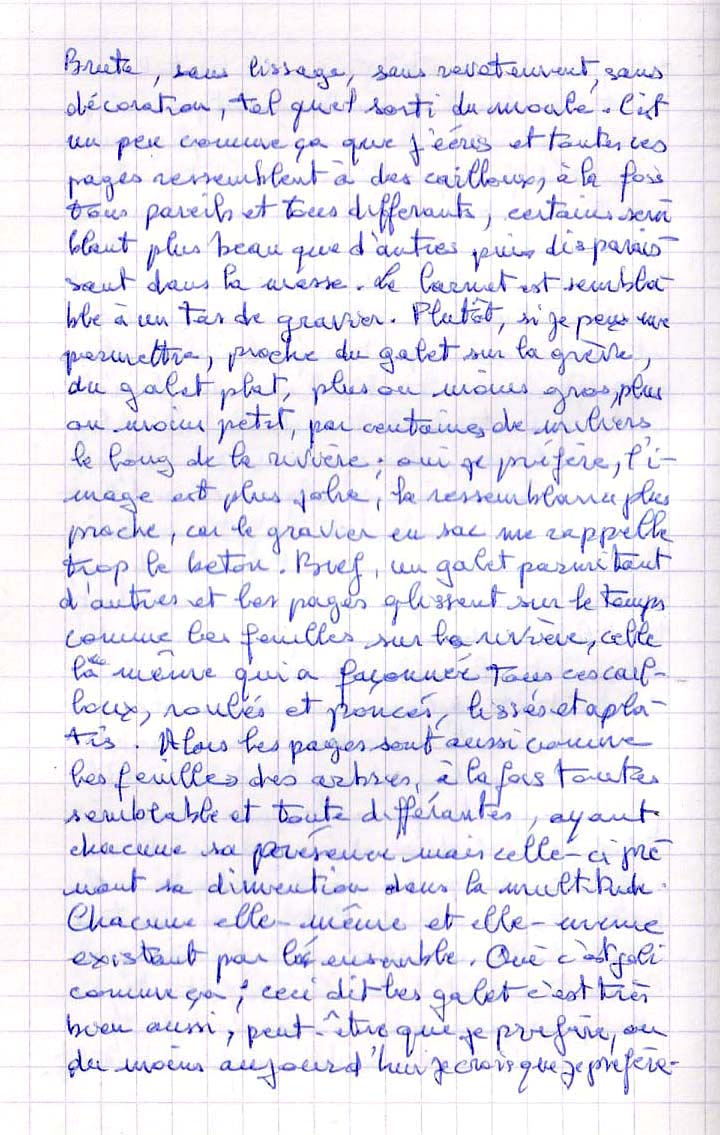 Brute, sans lissage, sans revetement, sans
décoration, tel quel sorti du moule. C'est
un peu comme ça que j'écris et toutes ces
pages ressemblent à des cailloux, à la fois
tous pareils et tous differants, certains sem
blant plus beau que d'autres puis disparais-
sant dans la masse. Le carnet est sembla-
ble à un tas de gravier. Plutôt, si je peux me
permettre, proche du galet sur la grève,
du galet plat, plus ou moins gros, plus
ou moins petit, par centaines de milliers
le long de la rivière ; oui je préfère, l'i-
mage est plus jolie, la ressemblance plus
proche, car le gravier en sac me rappelle
trop le beton. Bref, un galet parmi tant
d'autres et les pages glissent sur le temps
comme les feuilles sur la rivière, celle
là même qui a façonnée tous ces cail-
loux, roulés et poncés, lissés et apla-
tis. Alors les pages sont aussi comme
les feuilles des arbres, à la fois toutes
semblable et toute différantes, ayant
chacune sa présence mais celle-ci pre
nant sa dimention dans la multitude.
Chacune elle-même et elle-même
existant par l'ensemble. Que c'est joli
comme ça ; ceci dit les galet c'est très
bien aussi, peut-être que je préfère, ou
du moins aujourd'hui je crois que je préfère-